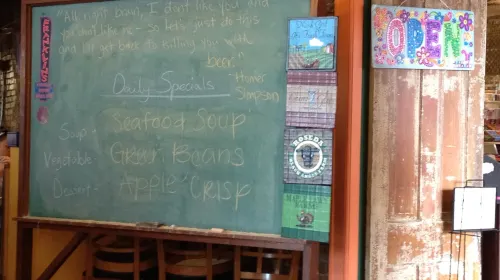 "All right brain, I don't like you and
you don't like me - so let's just do this
and I'll get back to killing you with
beer."
- Homer
Simpson
Daily Specials
Soup - Seafood Soup
Vegetable - Green Beans
Dessert - Apple Crisp
OPEN